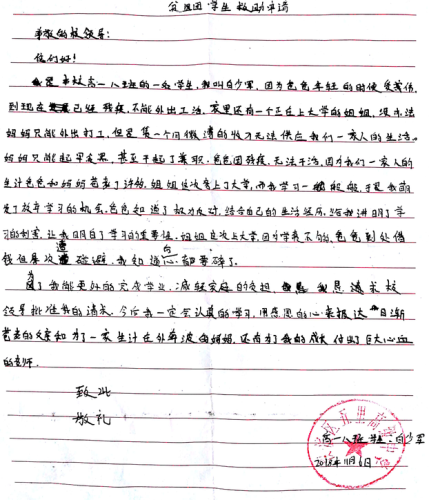 贫困学生救助申请
尊敬的校领导:
你们好!
我是本校高一八班的一名学生,我叫白少军,因为爸爸年轻的时候受我伤,
到现在已经残疾,不能外出工活,家里还有一个正在上大学的姐姐,没办法
妈妈只能外出打工,但是靠一个月微薄的收才无法供应我们一家人的生活。
妈妈只能起早贪黑,甚至干起了兼职,爸爸因残疾,无法干活,因为我们一家人的
生计爸爸和妈妈苍老了许多,姐姐这次考上了大学,而我学习一般般,于是我萌
发了放弃学习的机会,爸爸知道了极力反对,结合自己的生活经历,给我讲明了学
习的利害,让我明白了学习的重要性,姐姐这次上大学,因为学费不够,爸爸到处借
钱但屡次遭碰避,我知道心都要碎了。
为了我能更好的完成学业,减轻家庭的负担,我恳请求校
领导批准我的请求,今后我一定会认真的学习,用感恩的心来报达日渐
苍老的父亲和为了一家生计在外奔波的妈妈,还有为了我的成长付出了巨大心血
的老师。
致此
敬礼
高一八班 学生:白少军
11月6日